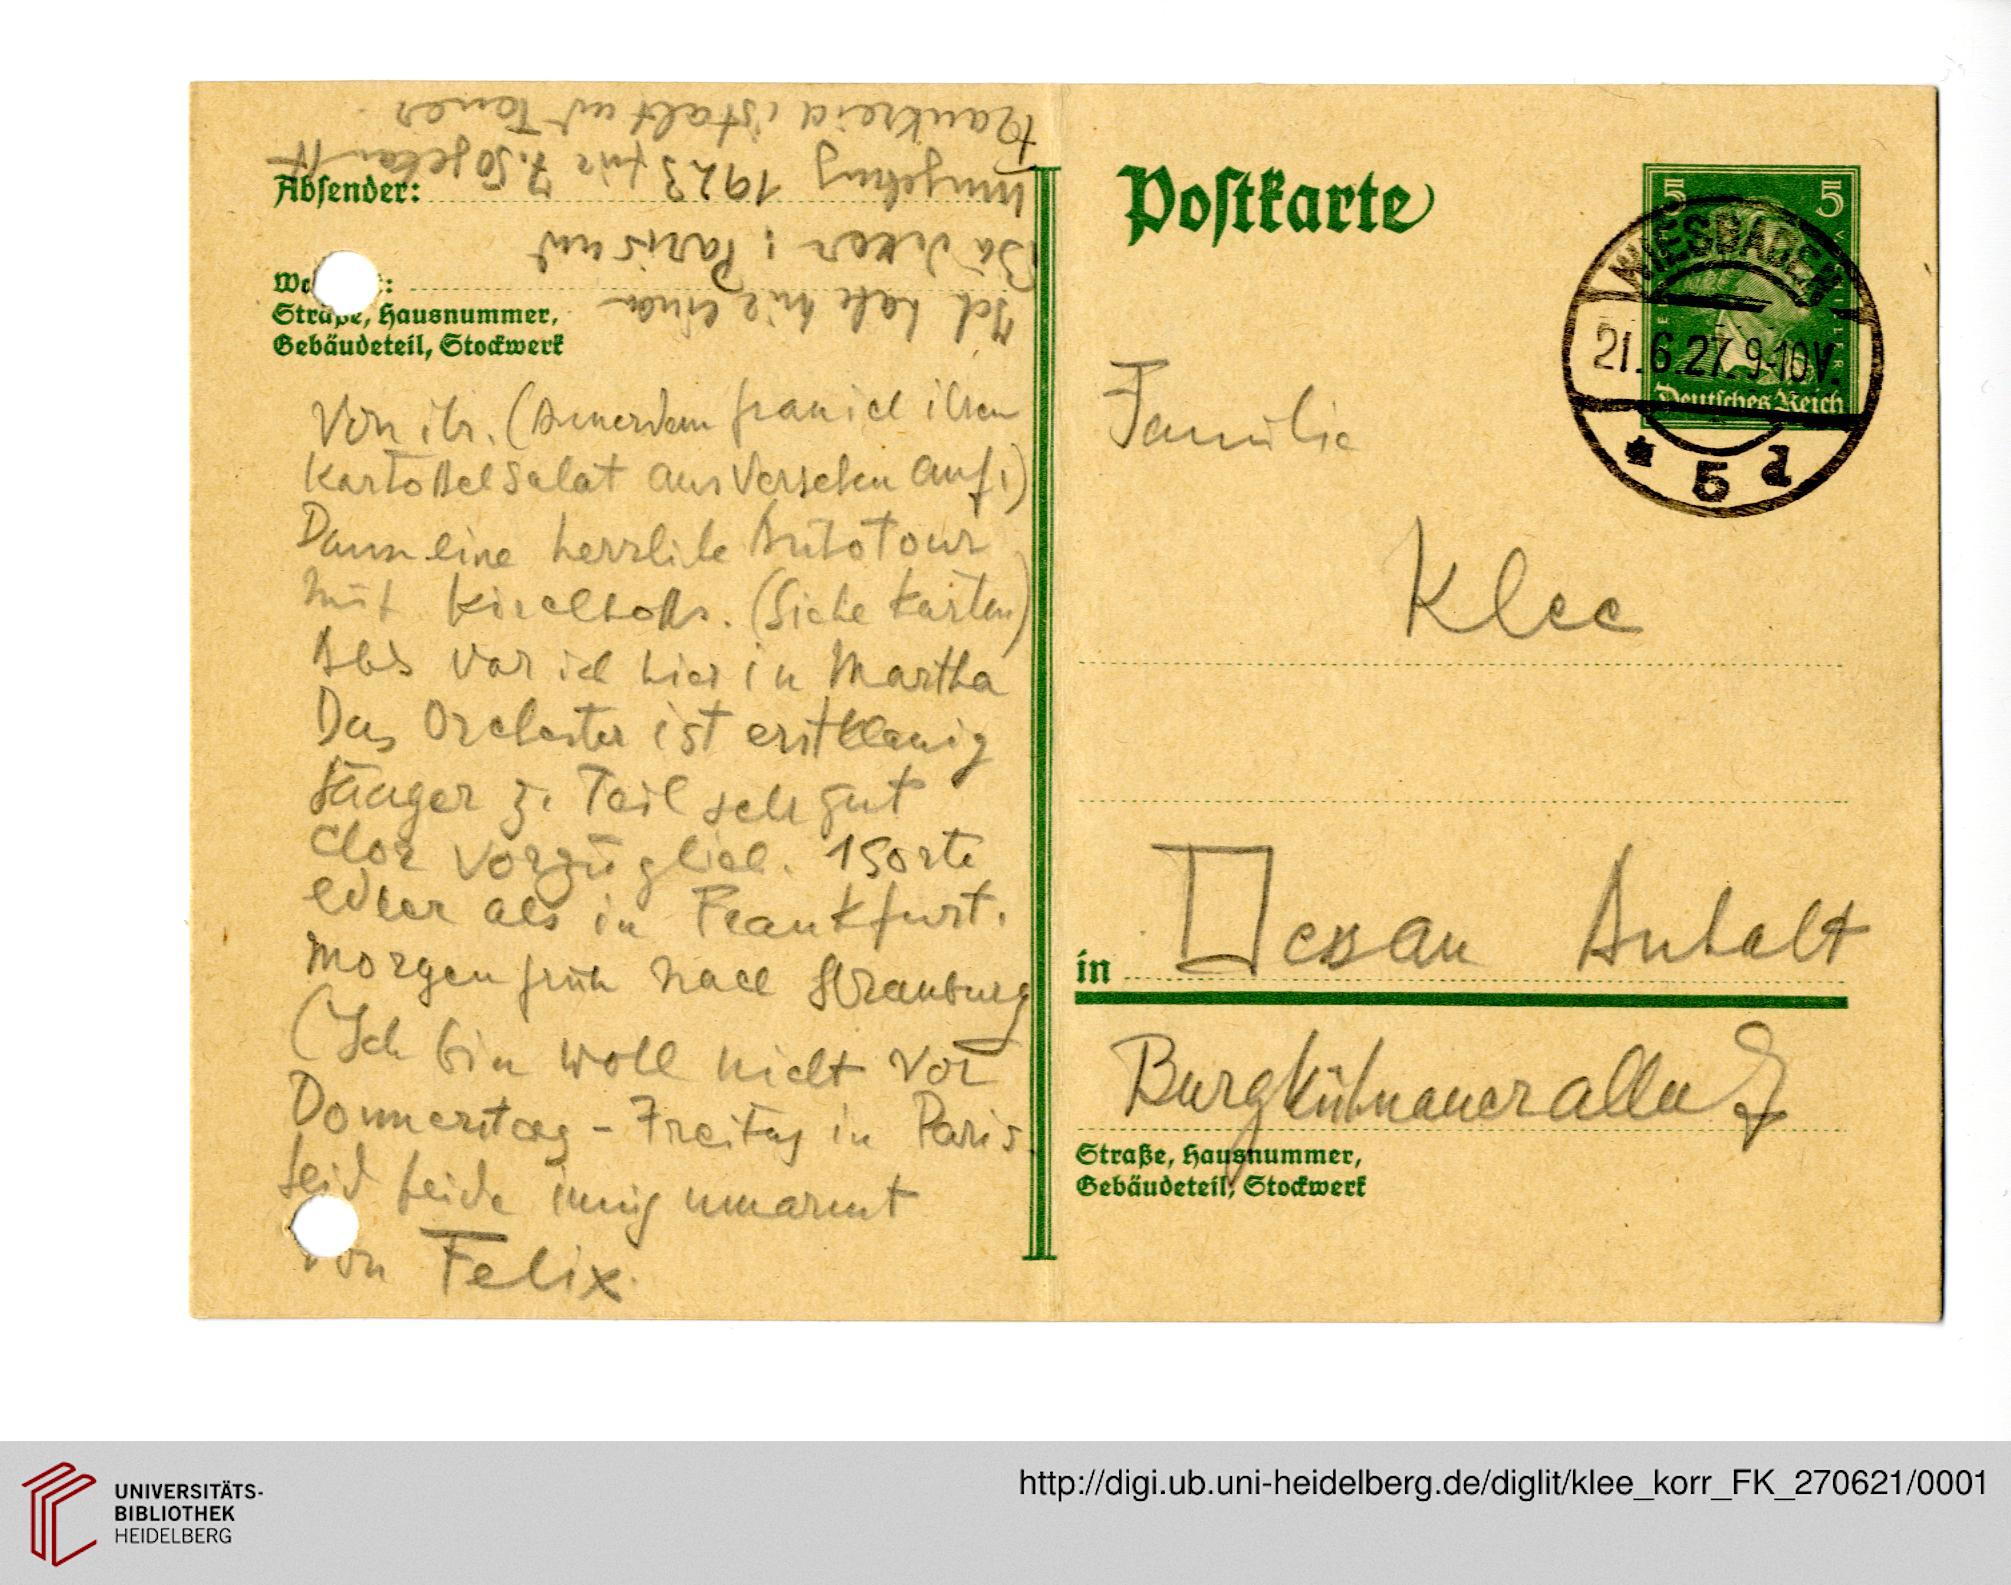 Ich habe hie einen
Bädeker: Paris und
Umgebung 1923 für 7.50 gekauft
Frankreich ist alt und teuer
Absender:
Straße, Hausnummer,
Gebäudeteil, Stockwerk
Von ihr. (Ausserdem frass ich ihren
Kartoffelsalat aus Versehen auf!)
Dann eine herrliche Autotour
mit Kirchhoffs. (Siehe Karten)
Abds war ich hier in Martha
Das Orchester ist erstklassig
Sänger z. Teil sehr gut
Chor vorzüglich. 1 Sorte
edler als in Frankfurt.
Morgen früh nach Strassburg
(Ich bin wohl nicht vor
Donnerstag - Freitag in Paris
Seid beide innig umarmt
von Felix.
Postkarte
5 5
Deutsches Reich
WIESBADEN
21.6.27.9-10V.
* 5 d
Familie
Klee
in Dessau Anhalt
Burgkühnauerallee
Straße, Hausnummer,
Gebäudeteil, Stockwerk
UNIVERSITÄTS-
BIBLIOTHEK
HEIDELBERG
http://digi.ub.uni-heidelberg.de/diglit/klee_korr_FK_270621/0001